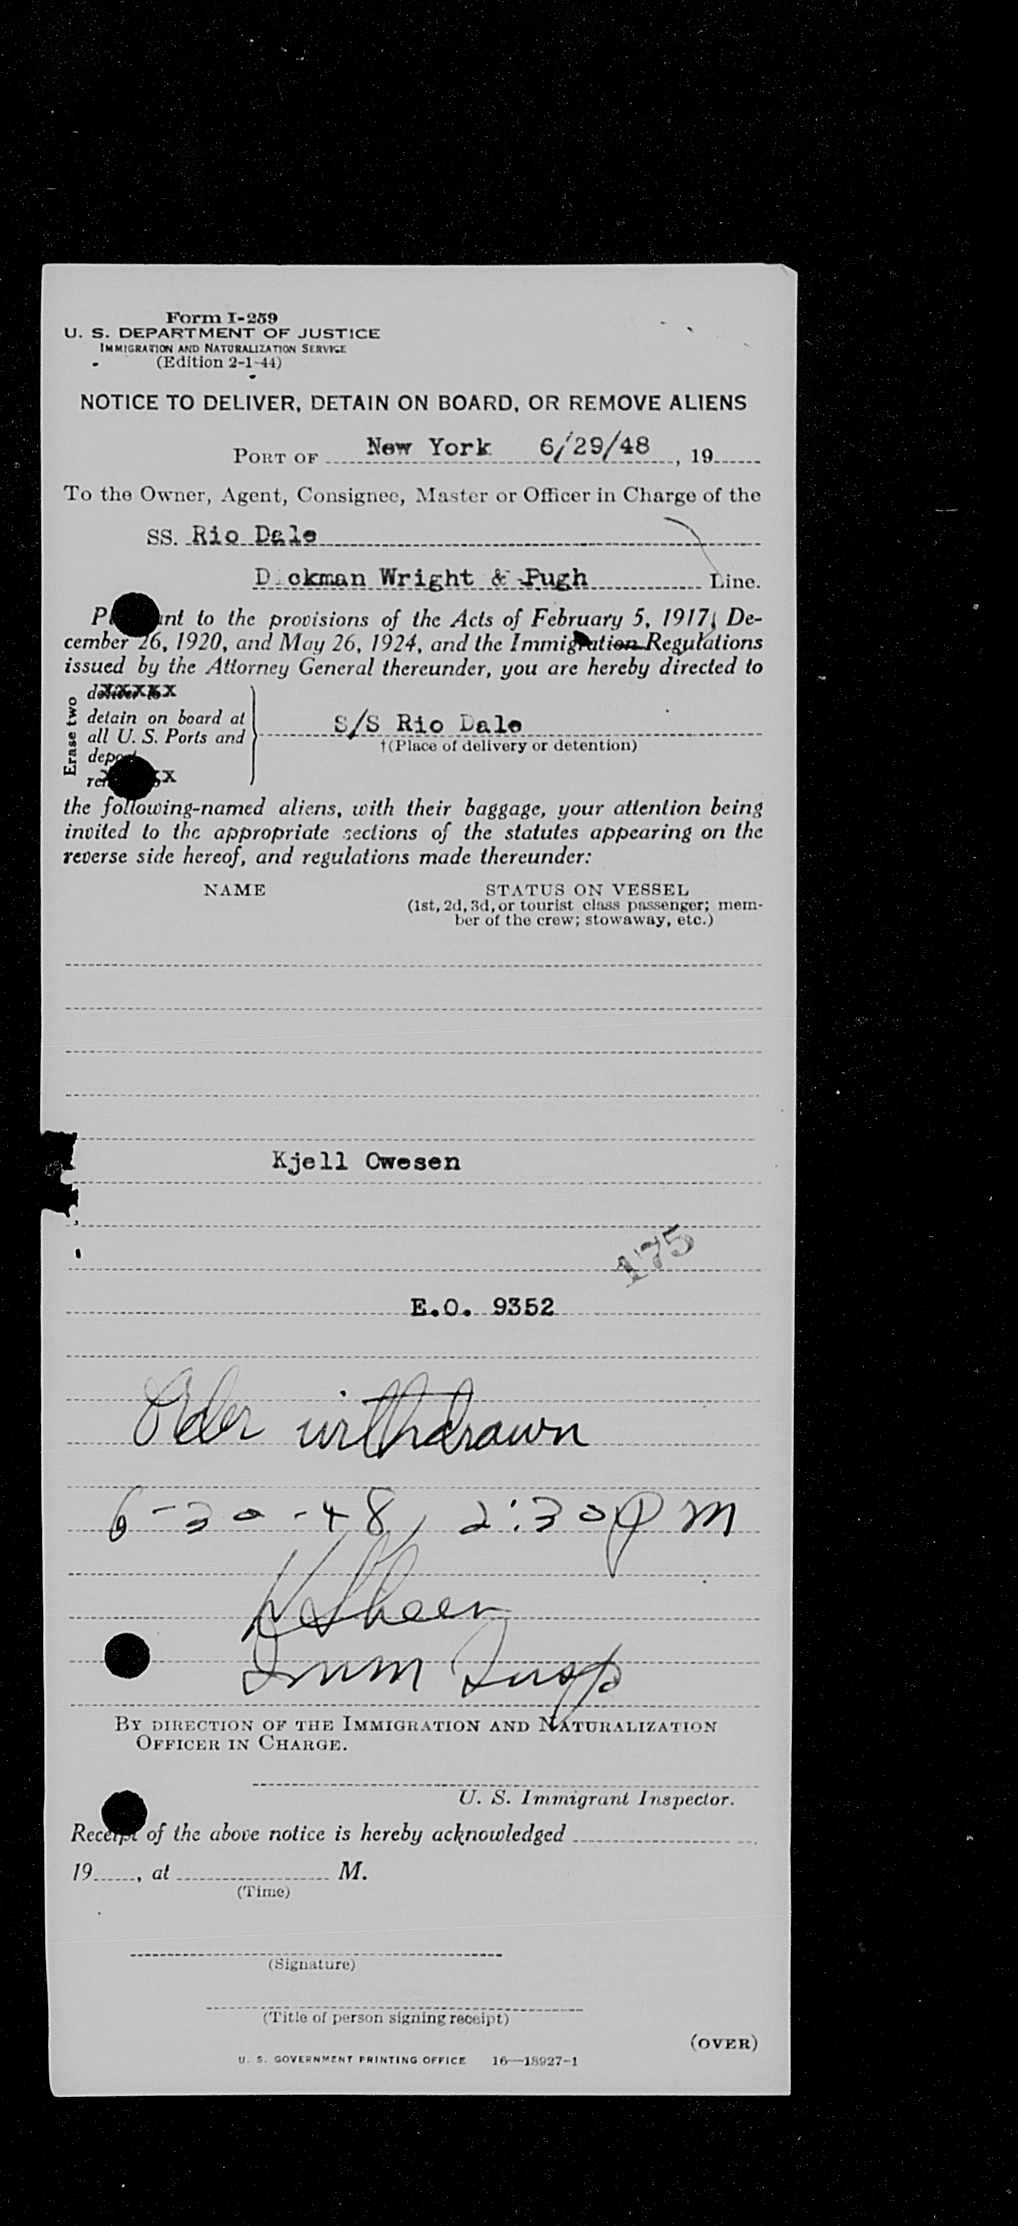 Form I-259
U. S. DEPARTMENT OF JUSTICE
IMMIGRATION AND NATURALIZATION SERVICE
(Edition 2-1-44)
NOTICE TO DELIVER, DETAIN ON BOARD, OR REMOVE ALIENS
PORT OF New York 6/29/48, 19
To the Owner, Agent, Consignee, Master or Officer in Charge of the
SS. Rio Dale
D ckman Wright & Pugh Line.
P ant to the provisions of the Acts of February 5, 1917, De-
cember 26, 1920, and May 26, 1924, and the Immigration Regulations
issued by the Attorney General thereunder, you are hereby directed to
Erase two
detain on board at
all U. S. Ports and
deport
S/S Rio Dale
†(Place of delivery or detention)
the following-named aliens, with their baggage, your attention being
invited to the appropriate sections of the statutes appearing on the
reverse side hereof, and regulations made thereunder:
NAME STATUS ON VESSEL
(1st, 2d, 3d, or tourist class passenger; mem-
ber of the crew; stowaway, etc.)
Kjell Owesen
175
E.O. 9352
Order withdrawn
6-30-48, 2:30 PM
Imm Insp
BY DIRECTION OF THE IMMIGRATION AND NATURALIZATION
OFFICER IN CHARGE.
U. S. Immigrant Inspector.
Receipt of the above notice is hereby acknowledged
19, at M.
(Time)
(Signature)
(Title of person signing receipt)
(OVER)
U. S. GOVERNMENT PRINTING OFFICE 16—18927-1